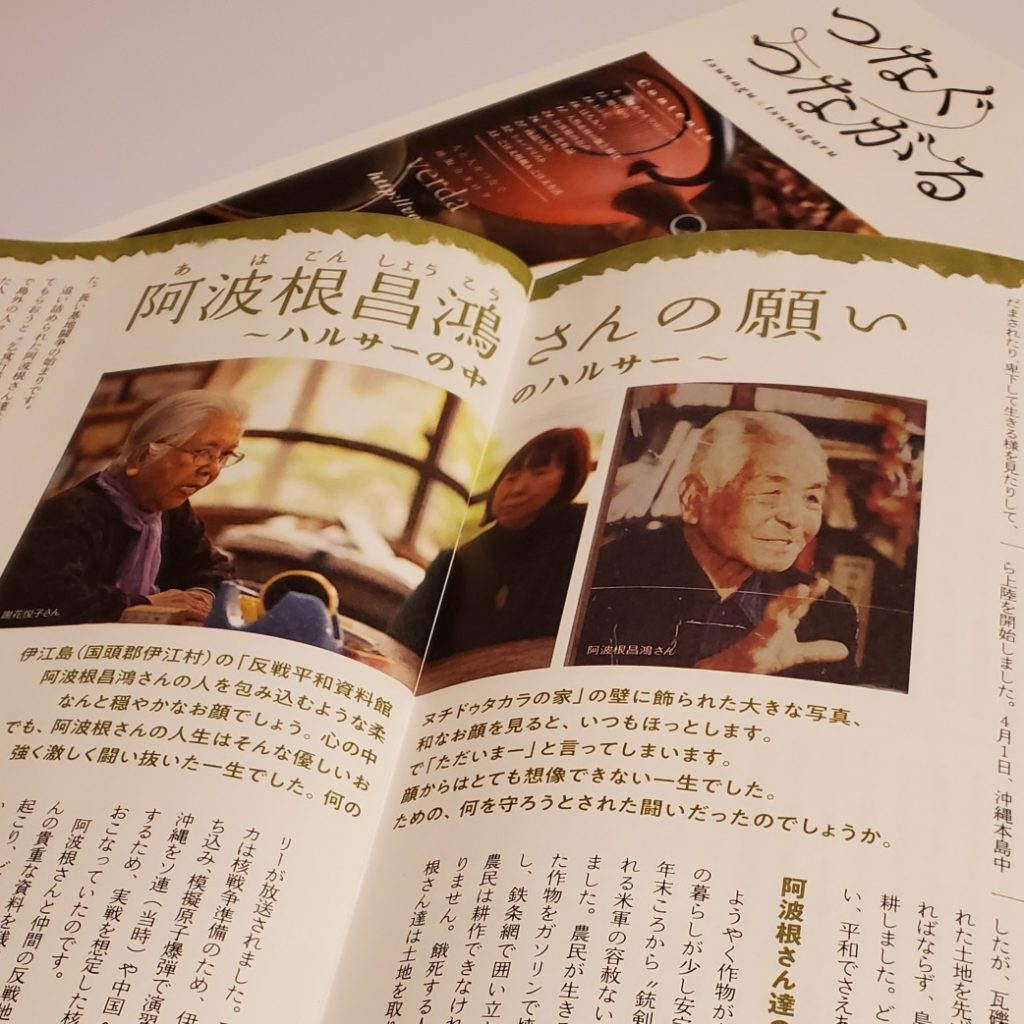 つなぐ
つながる
tsunagu×tsunagaru
Contents
Verda
あ は ごん しょう こう
阿波根昌鴻さんの願い
～ハルサーの中のハルサー～
謝花悦子さん
阿波根昌鴻さん
伊江島（国頭郡伊江村）の「反戦平和資料館 ヌチドゥタカラの家」の壁に飾られた大きな写真、
阿波根昌鴻さんの人を包み込むような柔和なお顔を見ると、いつもほっとします。
なんと穏やかなお顔でしょう。心の中で「ただいまー」と言ってしまいます。
でも、阿波根さんの人生はそんな優しいお顔からはとても想像できない一生でした。
強く激しく闘い抜いた一生でした。何のための、何を守ろうとされた闘いだったのでしょうか。
だまされたり、卑下して生きる様を見たりして、
ら上陸を開始しました。4月1日、沖縄本島中
したが、瓦礫
れた土地を先
ればならず、島
耕しました。ど
い、平和でさえも
阿波根さん達の
ようやく作物が
の暮らしが少し安定
年末ころから〝銃剣
れる米軍の容赦ない
ました。農民が生き
た作物をガソリンで
し、鉄条網で囲い立
農民は耕作できなけれ
りません。餓死する
根さん達は土地を取り
た。長い基地闘争の始まりです。
追い詰められた阿波根さん達
てもらおうと
で島外の人
リーが放送されました。
カは核戦争準備のため、伊
ち込み、模擬原子爆弾で演習
沖縄をソ連（当時）や中国
するため、実戦を想定した核
おこなっていたのです。
阿波根さんと仲間の反戦地
んの貴重な資料を残
起こり、